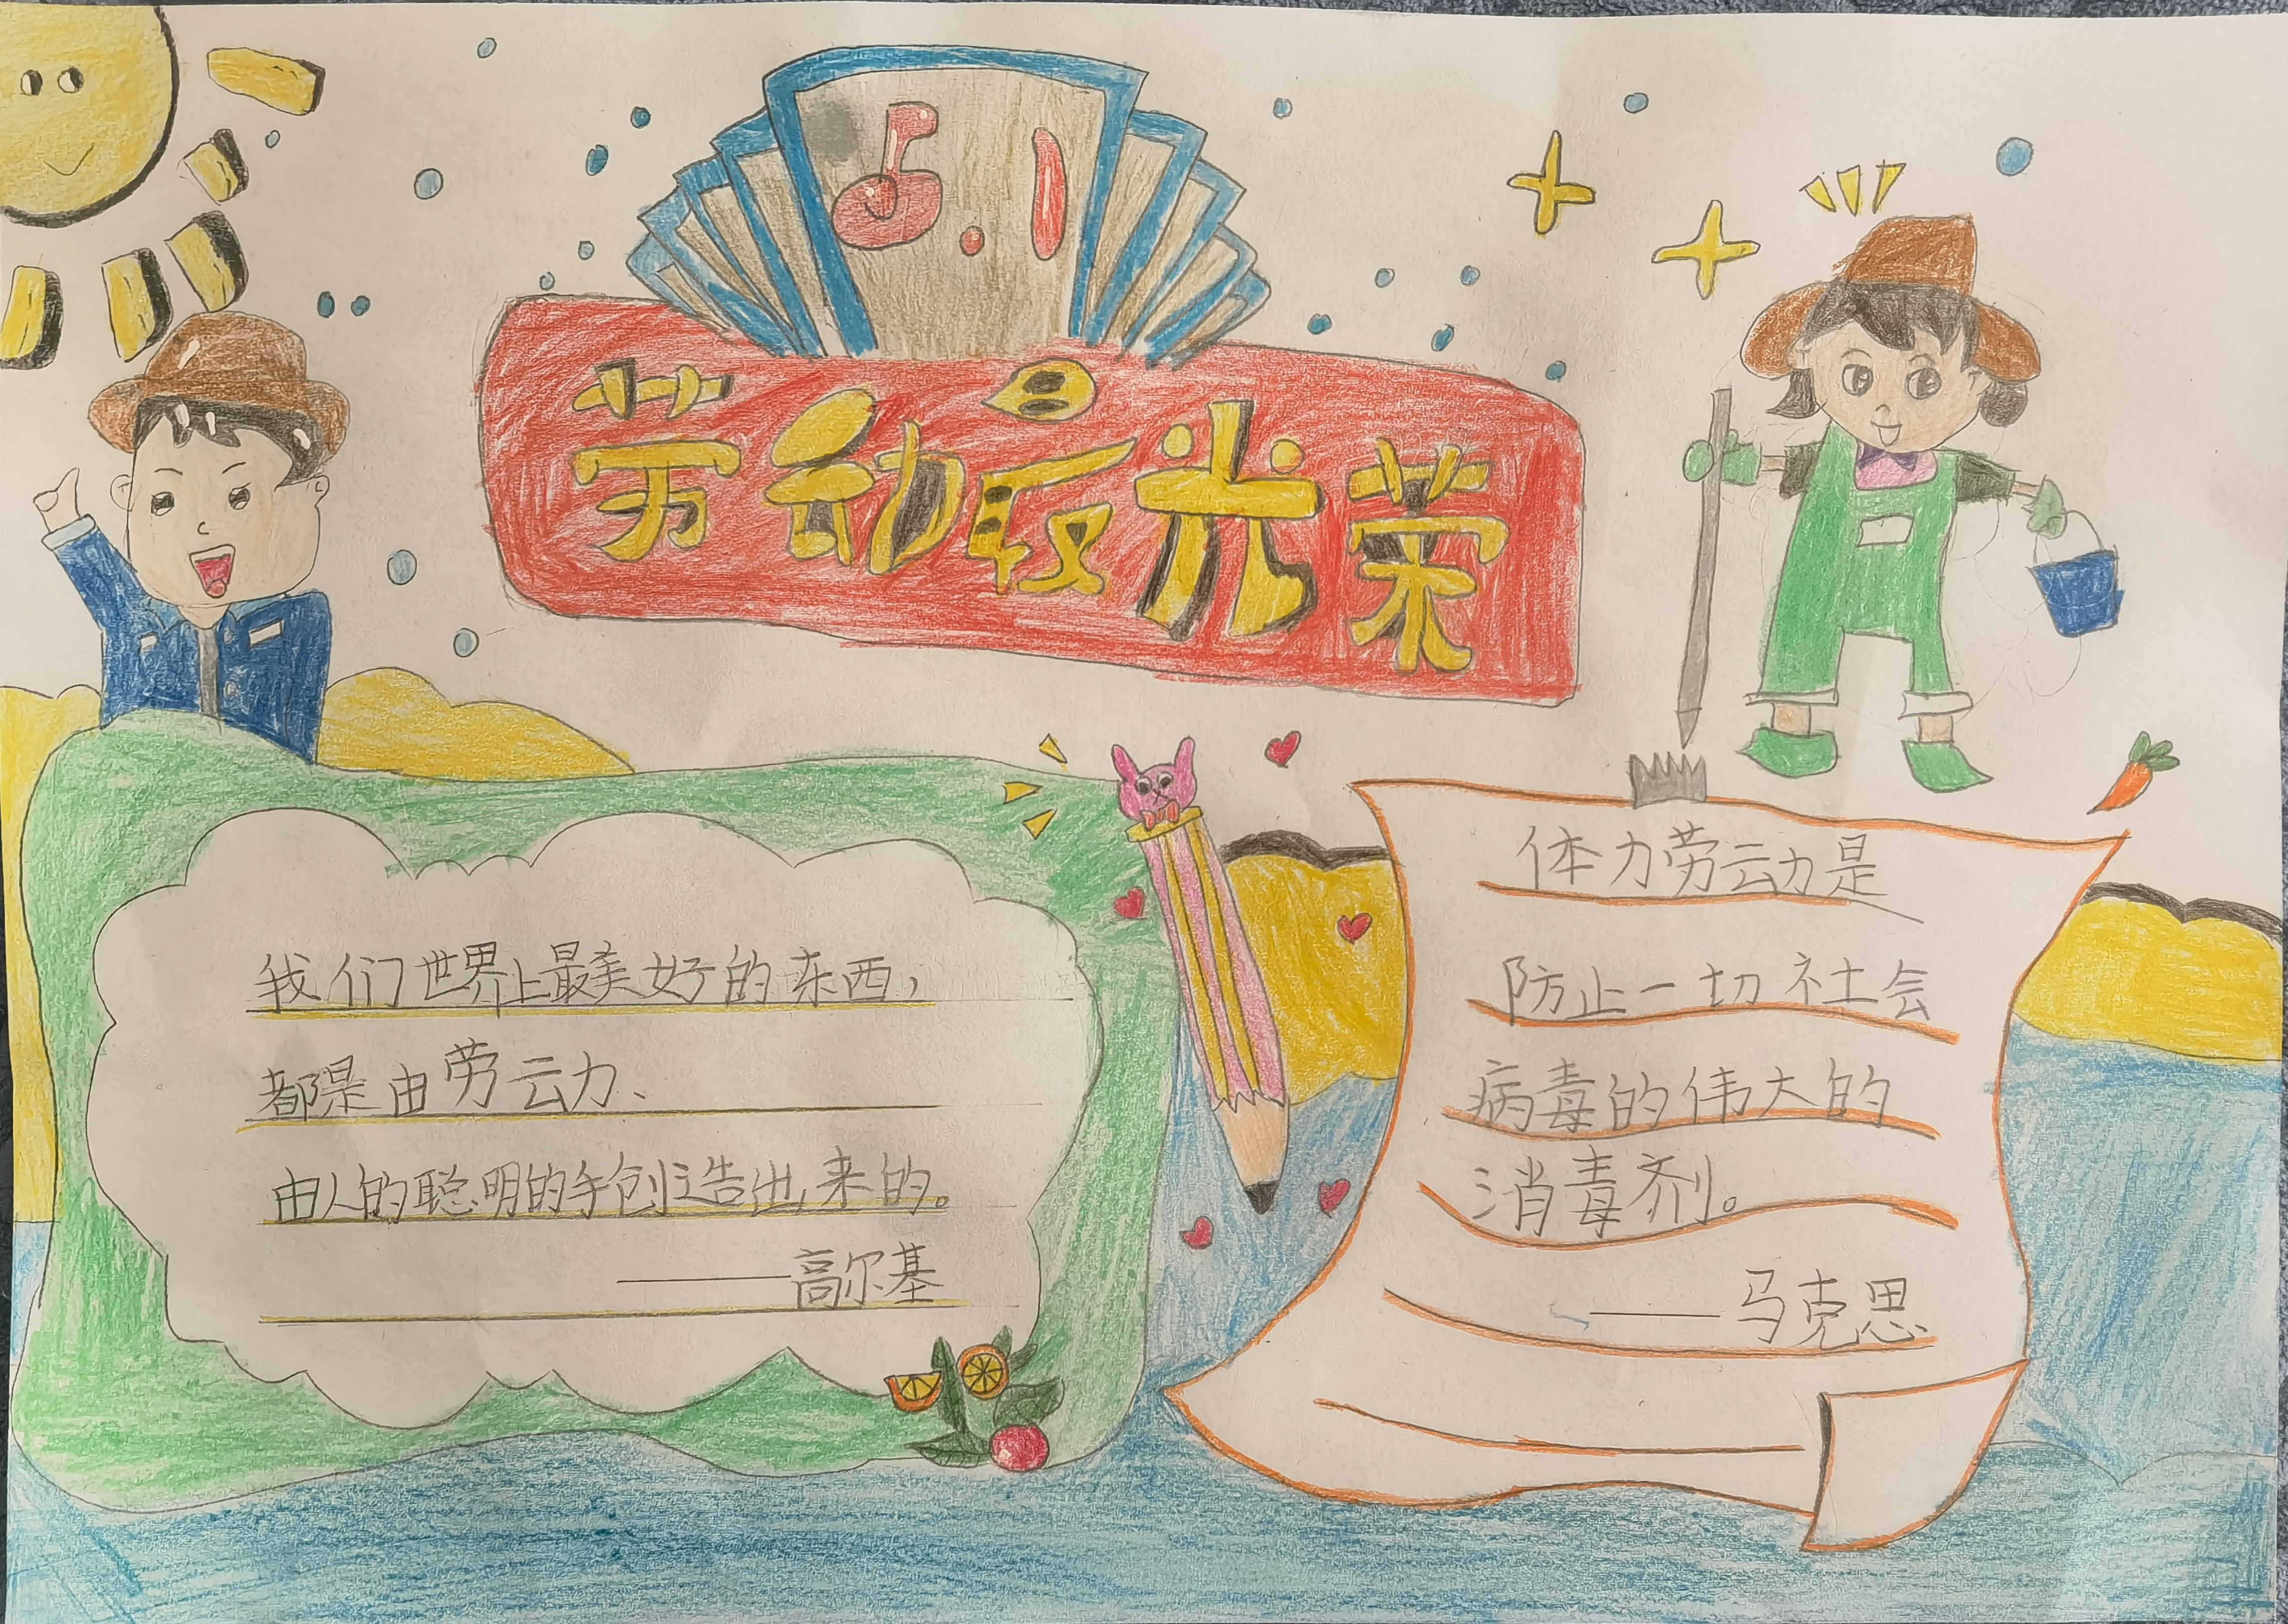 5.1
劳动最光荣
我们世界上最美好的东西，
都是由劳动、
由人的聪明的手创造出来的。
——高尔基
体力劳动是
防止一切社会
病毒的伟大的
消毒剂。
——马克思